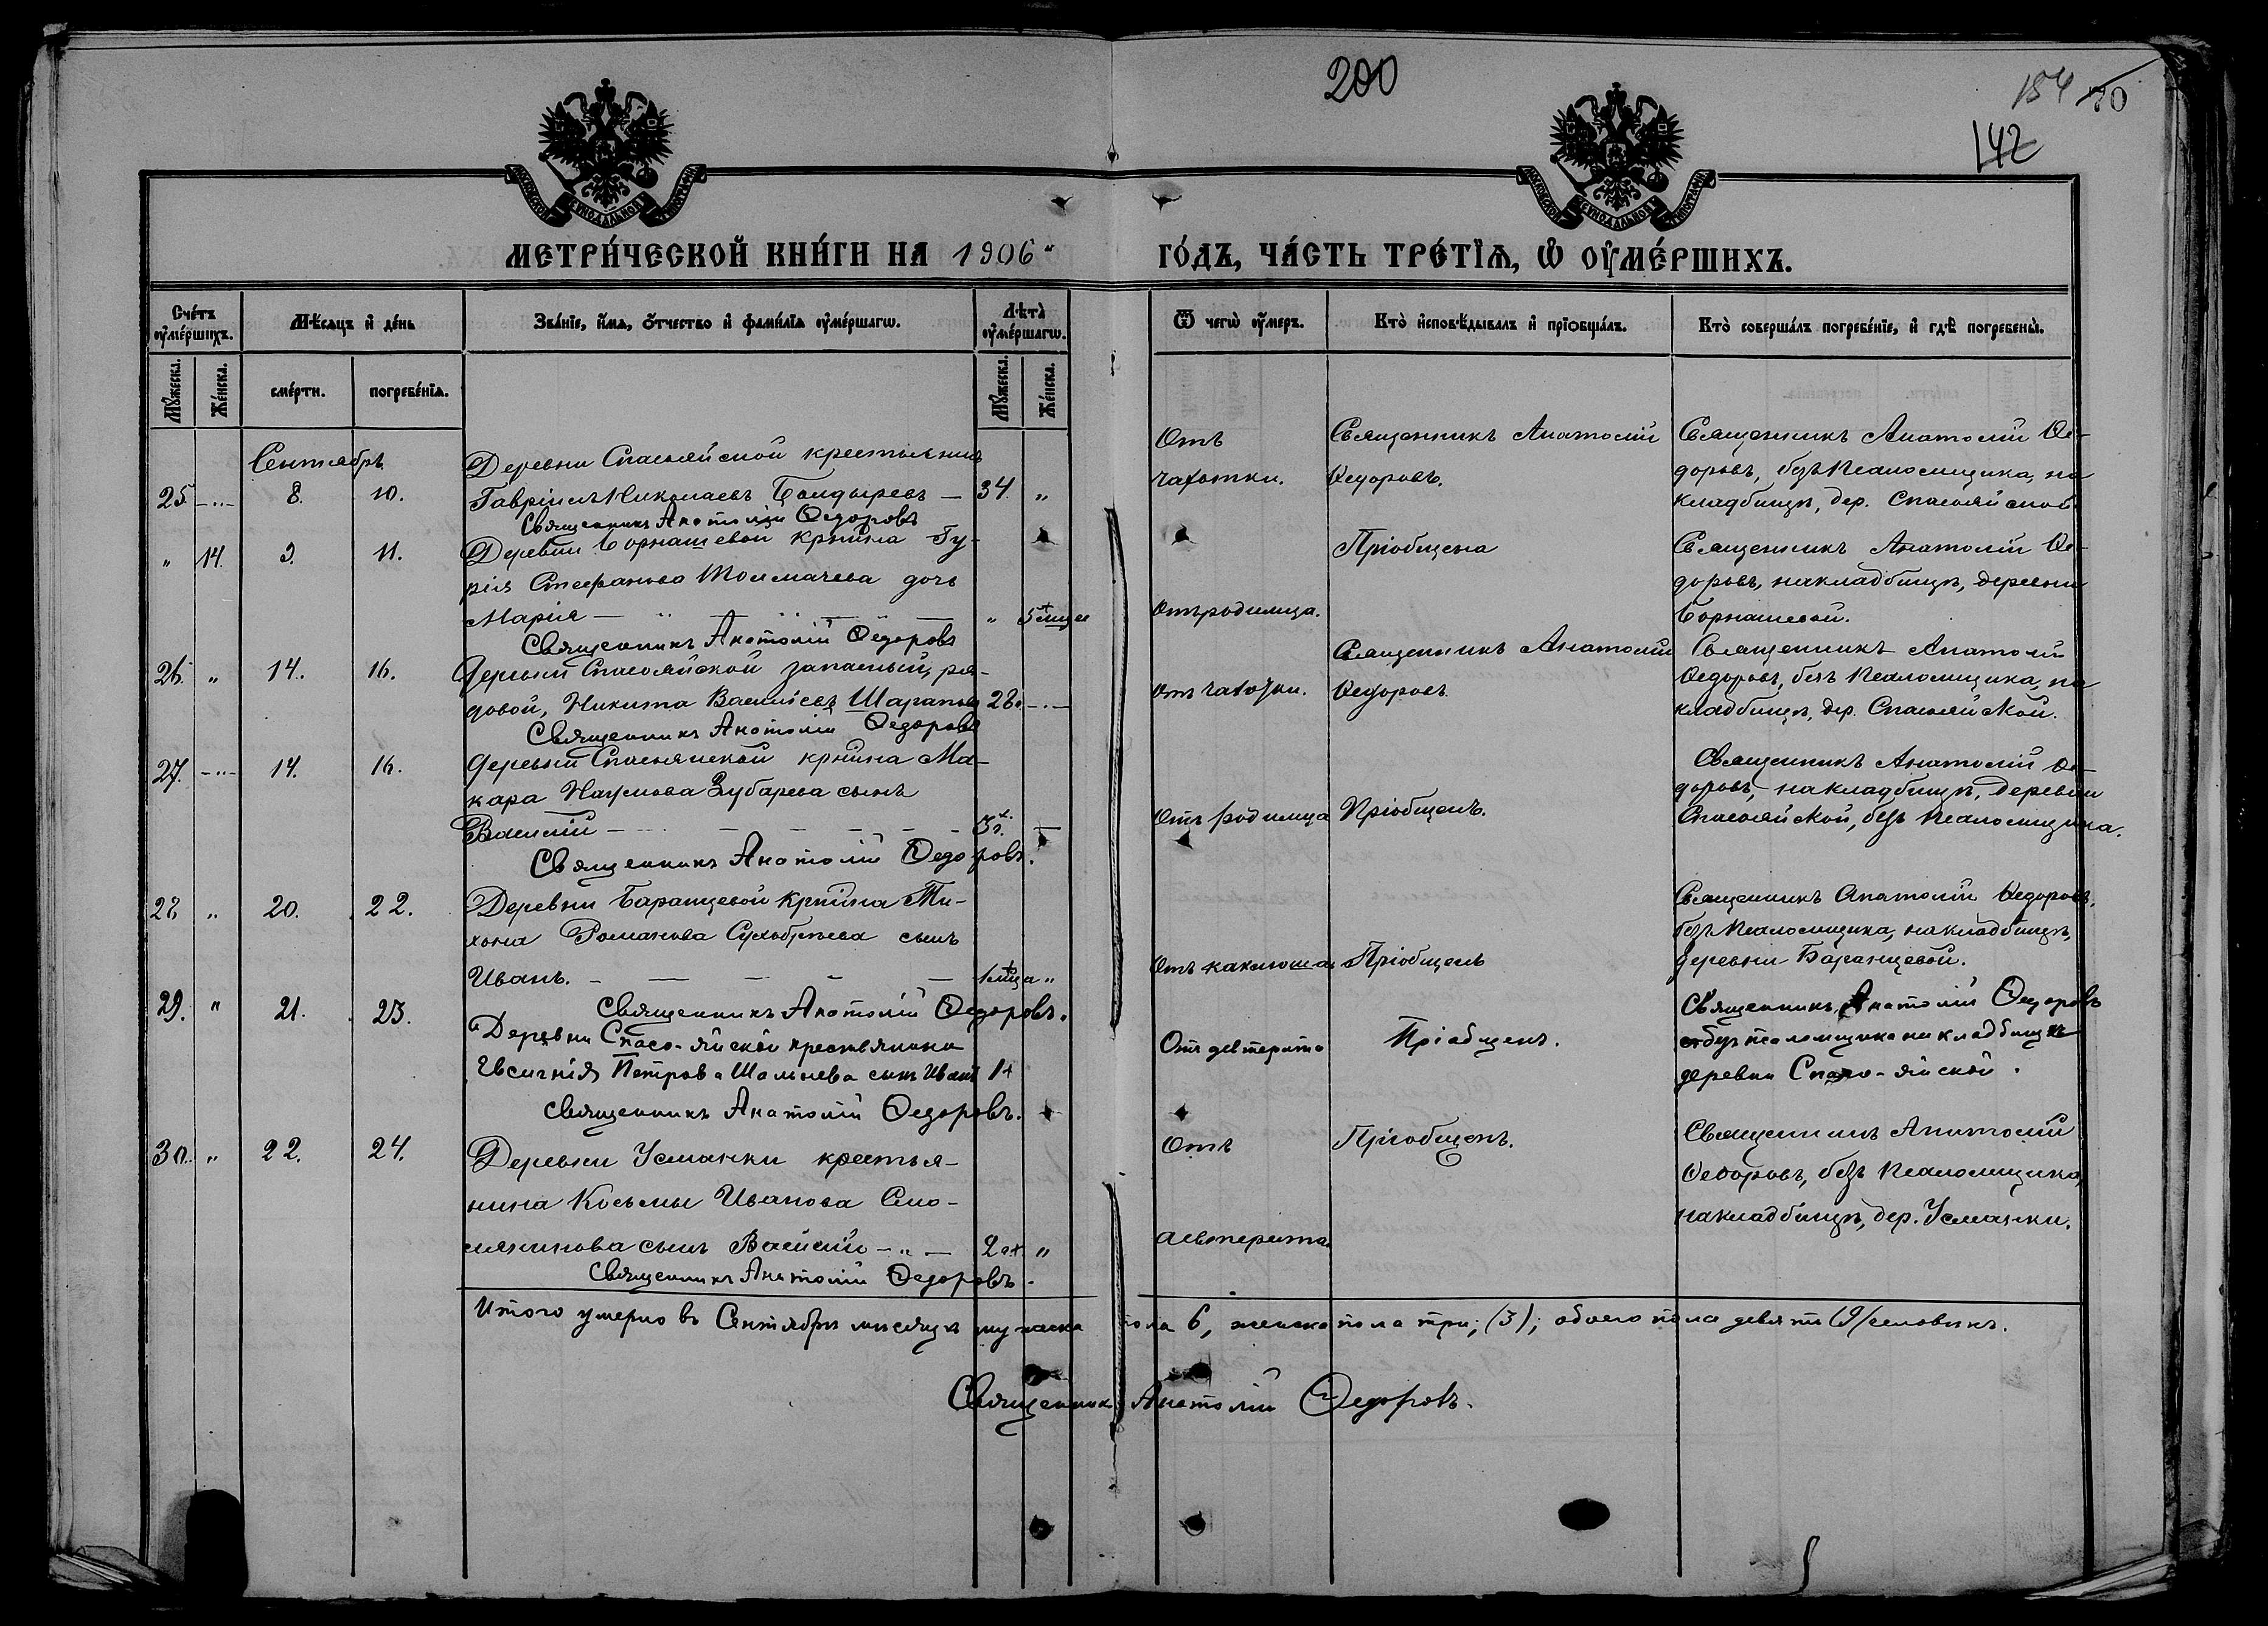 200
154 70
142
МОСКОВСКОЙ СѴНОДАЛЬНОЙ ТИПОГРАФІИ
МОСКОВСКОЙ СѴНОДАЛЬНОЙ ТИПОГРАФІИ
МЕТРИ́ЧЕСКОЙ КНИ́ГИ НА 1906 ГО́ДЪ, ЧА́СТЬ ТРЕ́ТЇѦ, Ѡ ОУ҆МЕ́РШИХЪ.
Сче́тъ оу҆ме́ршихъ.
Мѣ́сѧцъ и҆ де́нь
Зва́нїе, и҆́мѧ, о҆́тчество и҆ фами́лїѧ оу҆ме́ршагѡ.
Лѣта̀ оу҆ме́ршагѡ.
Ѿ чегѡ̀ оу҆́меръ.
Кто̀ и҆сповѣ́дывалъ и҆ прїѡбща́лъ.
Кто̀ соверша́лъ погребе́нїе, и҆ гдѣ̀ погребены̀.
Мꙋ́жеска. Же́нска. сме́рти. погребе́нїѧ. Мꙋ́жеска. Же́нска.
Сентябрь
Деревни Спасояйской крестьянинъ
25 — 8. 10. Гавріилъ Николаевъ Болдыревъ — 34. „
Священникъ Анатолій Ѳедоровъ
Отъ чахотки.
Священникъ Анатолій Ѳедоровъ.
Священникъ Анатолій Ѳе-
доровъ, безъ псаломщика, на
кладбищѣ, дер. Спасояйской.
„ 14. 9. 11. Деревни Борнашевой кр-нина Гу-
рія Стефанова Толмачева дочь
Марія — „ — 5 м-цев
Священникъ Анатолій Ѳедоровъ
Отъ родимца.
Пріобщена
Священникъ Анатолій Ѳе-
доровъ, на кладбищѣ, деревни
Борнашевой.
26. „ 14. 16. Деревни Спасояйской запасный ря-
довой, Никита Васильевъ Шарапов 28. —
Священникъ Анатолій Ѳедоровъ
Отъ чахотки.
Священникъ Анатолій
Ѳедоровъ
Священникъ Анатолій
Ѳедоровъ, безъ псаломщика, на
кладбищѣ, дер. Спасояйской.
27. — 14. 16. Деревни Спасояйской кр-нина Ма-
кара Наумова Зубарева сынъ
Василій — 3 г. —
Священникъ Анатолій Ѳедоровъ.
Отъ родимца
Пріобщенъ.
Священникъ Анатолій Ѳе-
доровъ, на кладбищѣ, деревни
Спасояйской, безъ псаломщика.
28 „ 20. 22. Деревни Баранцевой кр-нина Ти-
хона Романова сынъ
Иванъ. — 1 м-ца „
Священникъ Анатолій Ѳедоровъ.
Отъ кахлюша
Пріобщенъ
Священникъ Анатолій Ѳедоровъ,
безъ псаломщика, на кладбищѣ,
деревни Баранцевой.
29. „ 21. 23. Деревни Спасо-яйской крестьянина
Евсигнія Петрова сынъ Иванъ 1
Священникъ Анатолій Ѳедоровъ.
Отъ девтерита
Пріобщенъ.
Священникъ Анатолій Ѳедоровъ
безъ псаломщика на кладбищѣ
деревни Спасо-яйской.
30. „ 22. 24. Деревни Усманки крестья-
нина Косьмы Иванова Смо-
лянинова сынъ Василій — „ — 2 „
Священникъ Анатолій Ѳедоровъ.
Отъ
девтерита.
Пріобщенъ.
Священникъ Анатолій
Ѳедоровъ, безъ псаломщика,
на кладбищѣ, дер. Усманки.
Итого умерло въ Сентябрѣ мѣсяцѣ мужеска пола 6, женска пола три, (3); обоего пола девять (9) человѣкъ.
Священникъ Анатолій Ѳедоровъ.